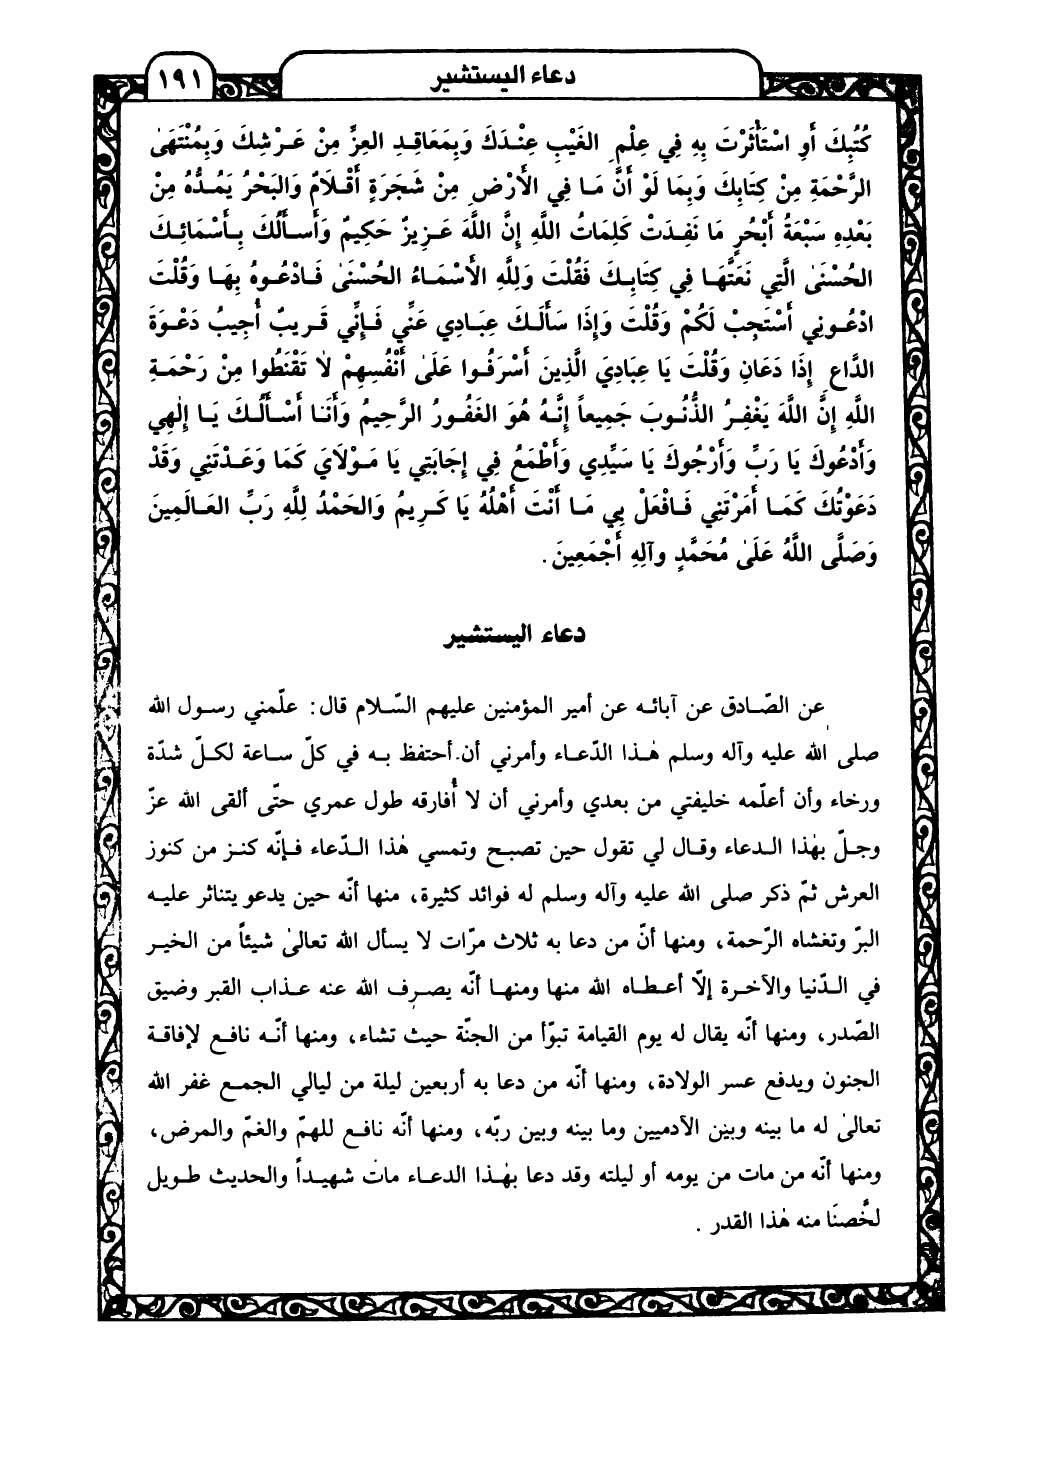 ١٩١
دعاء اليستشير
كُتُبِكَ أَوِ اسْتَأْثَرْتَ بِهِ فِي عِلْمِ الغَيْبِ عِنْدَكَ وَبِمَعَاقِدِ العِزِّ مِنْ عَرْشِكَ وَبِمُنْتَهَىٰ
الرَّحْمَةِ مِنْ كِتَابِكَ وَبِمَا لَوْ أَنَّ مَا فِي الأَرْضِ مِنْ شَجَرَةٍ أَقْلَامٌ وَالبَحْرُ يَمُدُّهُ مِنْ
بَعْدِهِ سَبْعَةُ أَبْحُرٍ مَا نَفِدَتْ كَلِمَاتُ اللَّهِ إِنَّ اللَّهَ عَزِيزٌ حَكِيمٌ وَأَسأَلُكَ بِأَسْمَائِكَ
الحُسْنَىٰ الَّتِي نَعَتَّهَا فِي كِتَابِكَ فَقُلْتَ وَلِلَّهِ الأَسْمَاءُ الحُسْنَىٰ فَادْعُوهُ بِهَا وَقُلْتَ
ادْعُونِي أَسْتَجِبْ لَكُمْ وَقُلْتَ وَإِذَا سَأَلَكَ عِبَادِي عَنِّي فَإِنِّي قَرِيبٌ أُجِيبُ دَعْوَةَ
الدَّاعِ إِذَا دَعَانِ وَقُلْتَ يَا عِبَادِيَ الَّذِينَ أَسْرَفُوا عَلَىٰ أَنْفُسِهِمْ لَا تَقْنَطُوا مِنْ رَحْمَةِ
اللَّهِ إِنَّ اللَّهَ يَغْفِرُ الذُّنُوبَ جَمِيعاً إِنَّهُ هُوَ الغَفُورُ الرَّحِيمُ وَأَنَا أَسْأَلُكَ يَا إِلٰهِي
وَأَدْعُوكَ يَا رَبِّ وَأَرْجُوكَ يَا سَيِّدِي وَأَطْمَعُ فِي إِجَابَتِي يَا مَوْلَايَ كَمَا وَعَدْتَنِي وَقَدْ
دَعَوْتُكَ كَمَا أَمَرْتَنِي فَافْعَلْ بِي مَا أَنْتَ أَهْلُهُ يَا كَرِيمُ وَالحَمْدُ لِلَّهِ رَبِّ العَالَمِينَ
وَصَلَّى اللَّهُ عَلَىٰ مُحَمَّدٍ وَآلِهِ أَجْمَعِينَ .
دعاء اليستشير
عن الصّادق عن آبائه عن أمير المؤمنين عليهم السّلام قال: علّمني رسول الله
صلى الله عليه وآله وسلم هٰذا الدّعاء وأمرني أن أحتفظ به في كلّ ساعة لكلّ شدّة
ورخاء وأن أعلّمه خليفتي من بعدي وأمرني أن لا أُفارقه طول عمري حتّى ألقى الله عزّ
وجلّ بهٰذا الدعاء وقال لي تقول حين تصبح وتمسي هٰذا الدّعاء فإنّه كنز من كنوز
العرش ثمّ ذكر صلى الله عليه وآله وسلم له فوائد كثيرة، منها أنّه حين يدعو يتناثر عليه
البرّ وتغشاه الرّحمة، ومنها أنّ من دعا به ثلاث مرّات لا يسأل الله تعالىٰ شيئاً من الخير
في الدّنيا والآخرة إلّا أعطاه الله منها ومنها أنّه يصرف الله عنه عذاب القبر وضيق
الصّدر، ومنها أنّه يقال له يوم القيامة تبوّأ من الجنّة حيث تشاء، ومنها أنّه نافع لإفاقة
الجنون ويدفع عسر الولادة، ومنها أنّه من دعا به أربعين ليلة من ليالي الجمع غفر الله
تعالىٰ له ما بينه وبين الآدميين وما بينه وبين ربّه، ومنها أنّه نافع للهمّ والغمّ والمرض،
ومنها أنّه من مات من يومه أو ليلته وقد دعا بهٰذا الدعاء مات شهيداً والحديث طويل
لخّصنا منه هٰذا القدر .